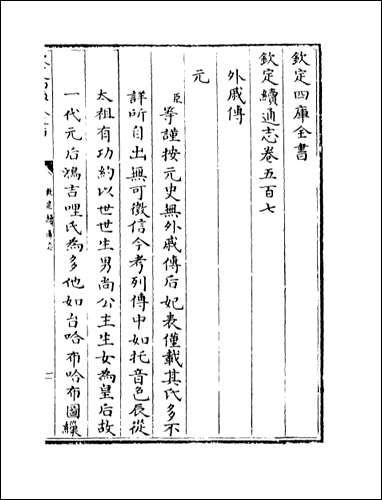 欽定四庫全書
欽定續通志卷五百七
外戚傳
元
臣等謹按元史無外戚傳后妃表僅載其氏多不
詳所自出無可徵信今考列傳中如托音色辰從
太祖有功約以世世生男尚公主生女為皇后故
一代元后鴻吉哩氏為多他如台哈布哈布圖纝
欽定續通志